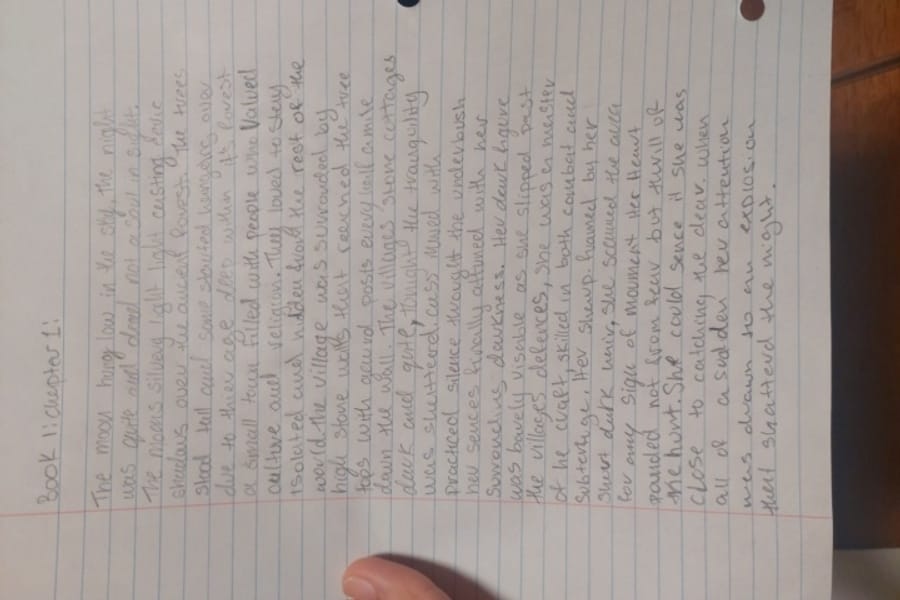 Book 1: chapter 1:
The moon hung low in the sky, the night
was quite and and not a soul in sight.
The moons silvery light casting eerie
shadows over the ancient forest. The trees
stood tall and some sprouted horns over
due to their age deep within its forest
a small town filled with people who valued
culture and religion. They loved to stay
isolated and hidden from the rest of the
world the village was surounded by
high stone walls that reached the tree
tops with guard posts every half a mile
down the wall. The villages stone cottages
dark and quite, tonight the tranquility
was shattered, cass moved with
practiced silence throught the underbush
her sences finally attuned with her
surronding darkness. Her dark figure
was barely visable as she slipped past
the villages defences, she was a master
of he craft, skilled in both combat and
subterfuge. Her sharp framed by her
short dark hair, she scanned the area
for any sign of movment Her Heart
pounded not from fear but thrill of
the hunt. She could sence it she was
close to catching the dear. when
all of a sudden her attention
was drawn to an explosion
that shaterd the night.